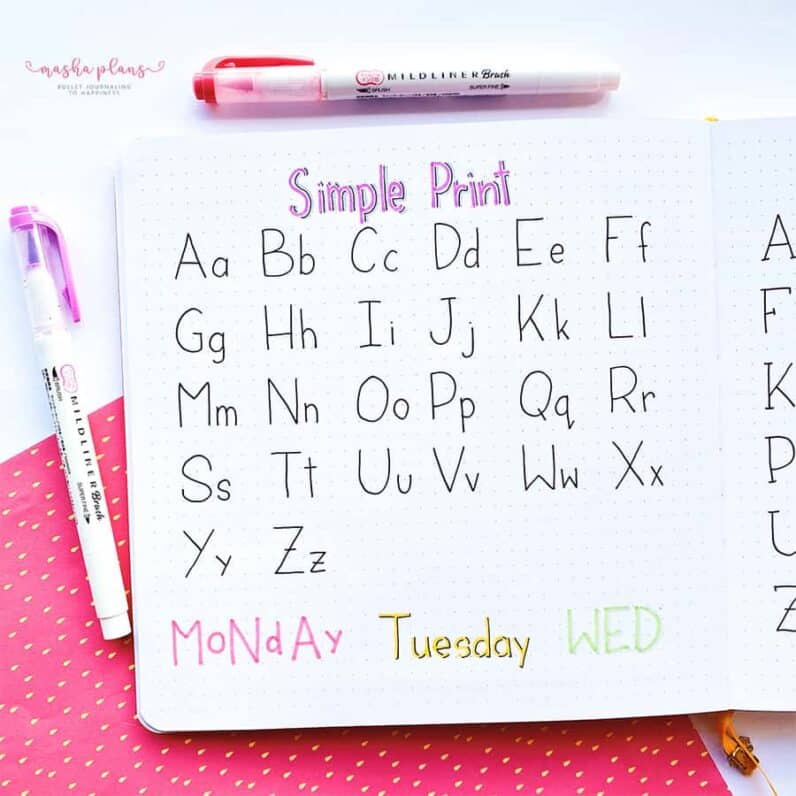 masha plans
BULLET JOURNALING
TO HAPPINESS
MILDLINER Brush
BRUSH SUPER FINE
Simple Print
Aa Bb Cc Dd Ee Ff
Gg Hh Ii Jj Kk Ll
Mm Nn Oo Pp Qq Rr
Ss Tt Uu Vv Ww Xx
Yy Zz
MoNdAy Tuesday WED
MILDLINER Brush
BRUSH SUPER FINE
A
F
K
P
U
Z